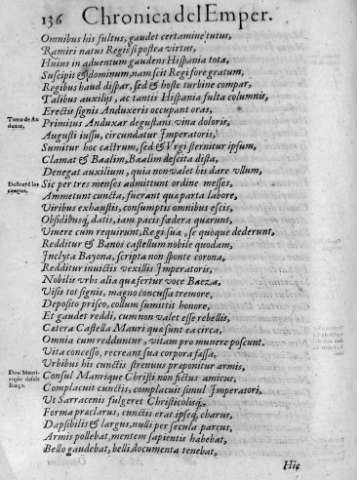 136 Chronica del Emper.
Omnibus his fultus, gaudet certamine tutus,
Ramiri natus Regis si postea virtus,
Huius in aduentum gaudens Hispania tota,
Suscipit & dominum, nam scit Regi fore gratum,
Regibus haud dispar, sed & hoste turbine compar,
Talibus auxilijs, ac tantis Hispania fulta columnis,
Erectis signis Anduxeris occupat oras,
Primitus Anduxar degustans vina doloris,
Augusti iussu, circundatur Imperatoris,
Sumitur hoc castrum, sed & Vrgi sternitur ipsum,
Clamat & Baalim, Baalim descita dista,
Denegat auxilium, quia non valet his dare vllum,
Sic per tres menses admittunt ordine messes,
Ammetunt cuncta, fuerant quæ parta labore,
Viribus exhaustis, consumptis omnibus escis,
Obsidibusq, datis, iam pacis fœdera quærunt,
Viuere cum requirunt, Regi sua, se quoque dederunt,
Redditur & Banos castellum nobile quodam,
Inclyta Bayona, scripta non sponte corona,
Redditur inuictis vexillis Imperatoris,
Nobilis vrbs alia quæ fertur voce Baeza,
Visis tot signis, magno concussa tremore,
Deposito prisco, collum summittit honore,
Et gaudet reddi, cum non valet esse rebellis,
Cætera Castella Mauri quæ sunt ea circa,
Omnia cum redduntur, vitam pro munere poscunt.
Vita concesso, recreant sua corpora fassa,
Vrbibus his cunctis strenuus præponitur armis,
Consul Manrique Christi non fictus amicus,
Complacuit cunctis, complacuit simul Imperatori,
Vt Sarracenis fulgeret Christicolisq,
Forma præclarus, cunctis erat ipseq, charus,
Dapsibilis & largus, nulli per secula parcus,
Armis pollebat, mentem sapientis habebat,
Bello gaudebat, belli documenta tenebat,
Hic